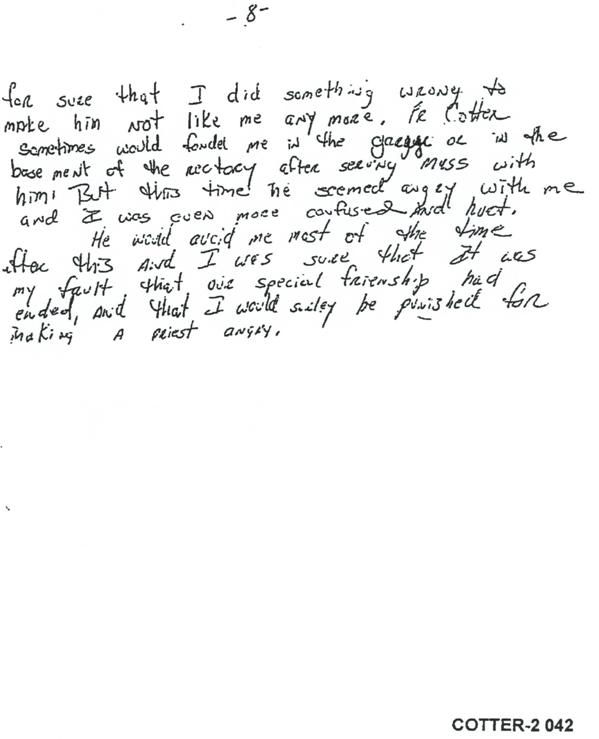 - 8 -
for sure that I did something wrong to
make him not like me any more. Fr Cotter
sometimes would fondel me in the garage or in the
basement of the rectory after serving mass with
him: But this time he seemed angry with me
and I was even more confused and hurt.
He would avoid me most of the time
after this and I was sure that it was
my fault that our special frienship had
ended, and that I would suiley be punished for
making a priest angry.
COTTER-2 042